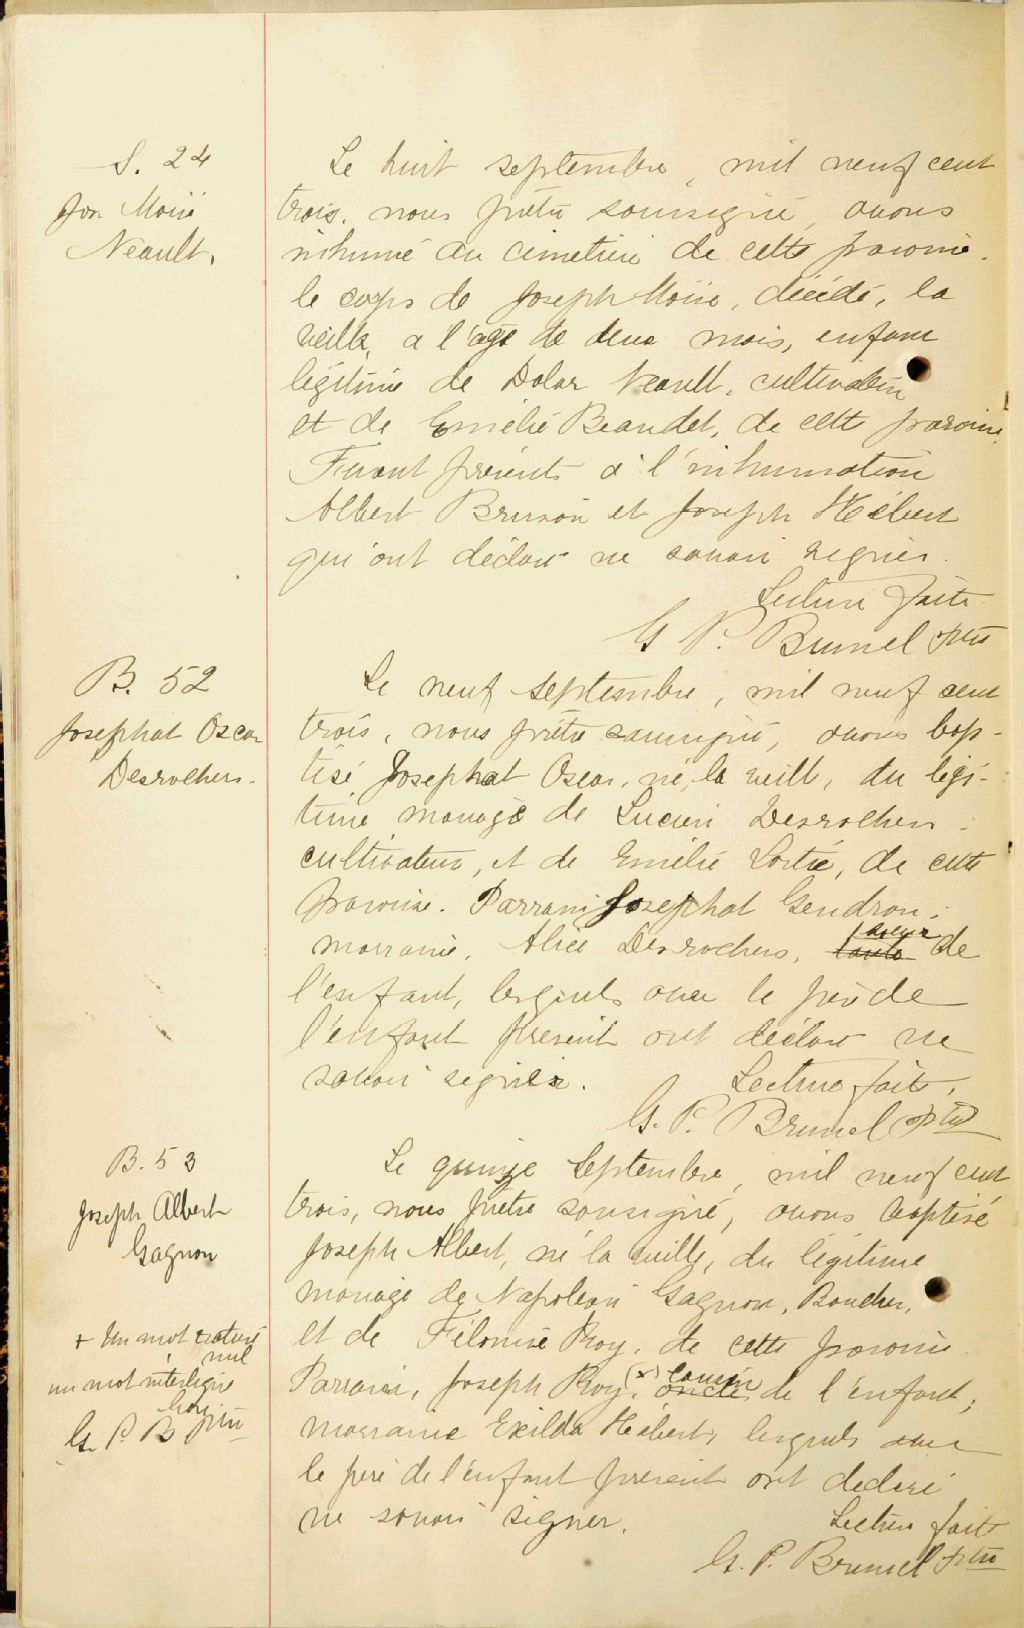 S. 24
Jos Moïse
Neault.
Le huit septembre, mil neuf cent
trois, nous prêtre soussigné, avons
inhumé au cimetière de cette paroisse
le corps de Joseph Moïse, décédé, la
veille, a l'age de deux mois, enfant
légitime de Dolor Neault, cultivateur
et de Emélie Beaudet, de cette paroisse.
Furent présents à l'inhumation
Albert Brisson et Joseph Hébert
qui ont déclaré ne savoir signer.
Lecture faite.
G P. Brunel ptre
B. 52
Josephat Oscar
Desrochers.
Le neuf septembre, mil neuf cent
trois, nous prêtre soussigné, avons bap-
tisé Josephat Oscar, né, la veille, du légi-
time mariage de Lucien Desrochers
cultivateur, et de Emélie Lortie, de cette
paroisse. Parrain Josephat Gendron,
marraine, Alice Desrochers, tante soeur de
l'enfant, lesquels avec le père de
l'enfant présent ont déclaré ne
savoir signer. Lecture faite,
G. P. Brunel ptre
B. 53
Joseph Albert
Gagnon
Le quinze septembre, mil neuf cent
trois, nous prêtre soussigné, avons baptisé
Joseph Albert, né la veille, du légitime
mariage de Napoléon Gagnon, Boucher,
et de Félonise Roy, de cette paroisse
Parrain, Joseph Roy, (x) oncle cousin de l'enfant;
marraine Exilda Hébert, lesquels avec
le père de l'enfant présent ont declaré
ne savoir signer.
Lecture faite
G. P. Brunel ptre
+ Un mot raturé
nul
un mot interligne
bon
G. P. B ptre